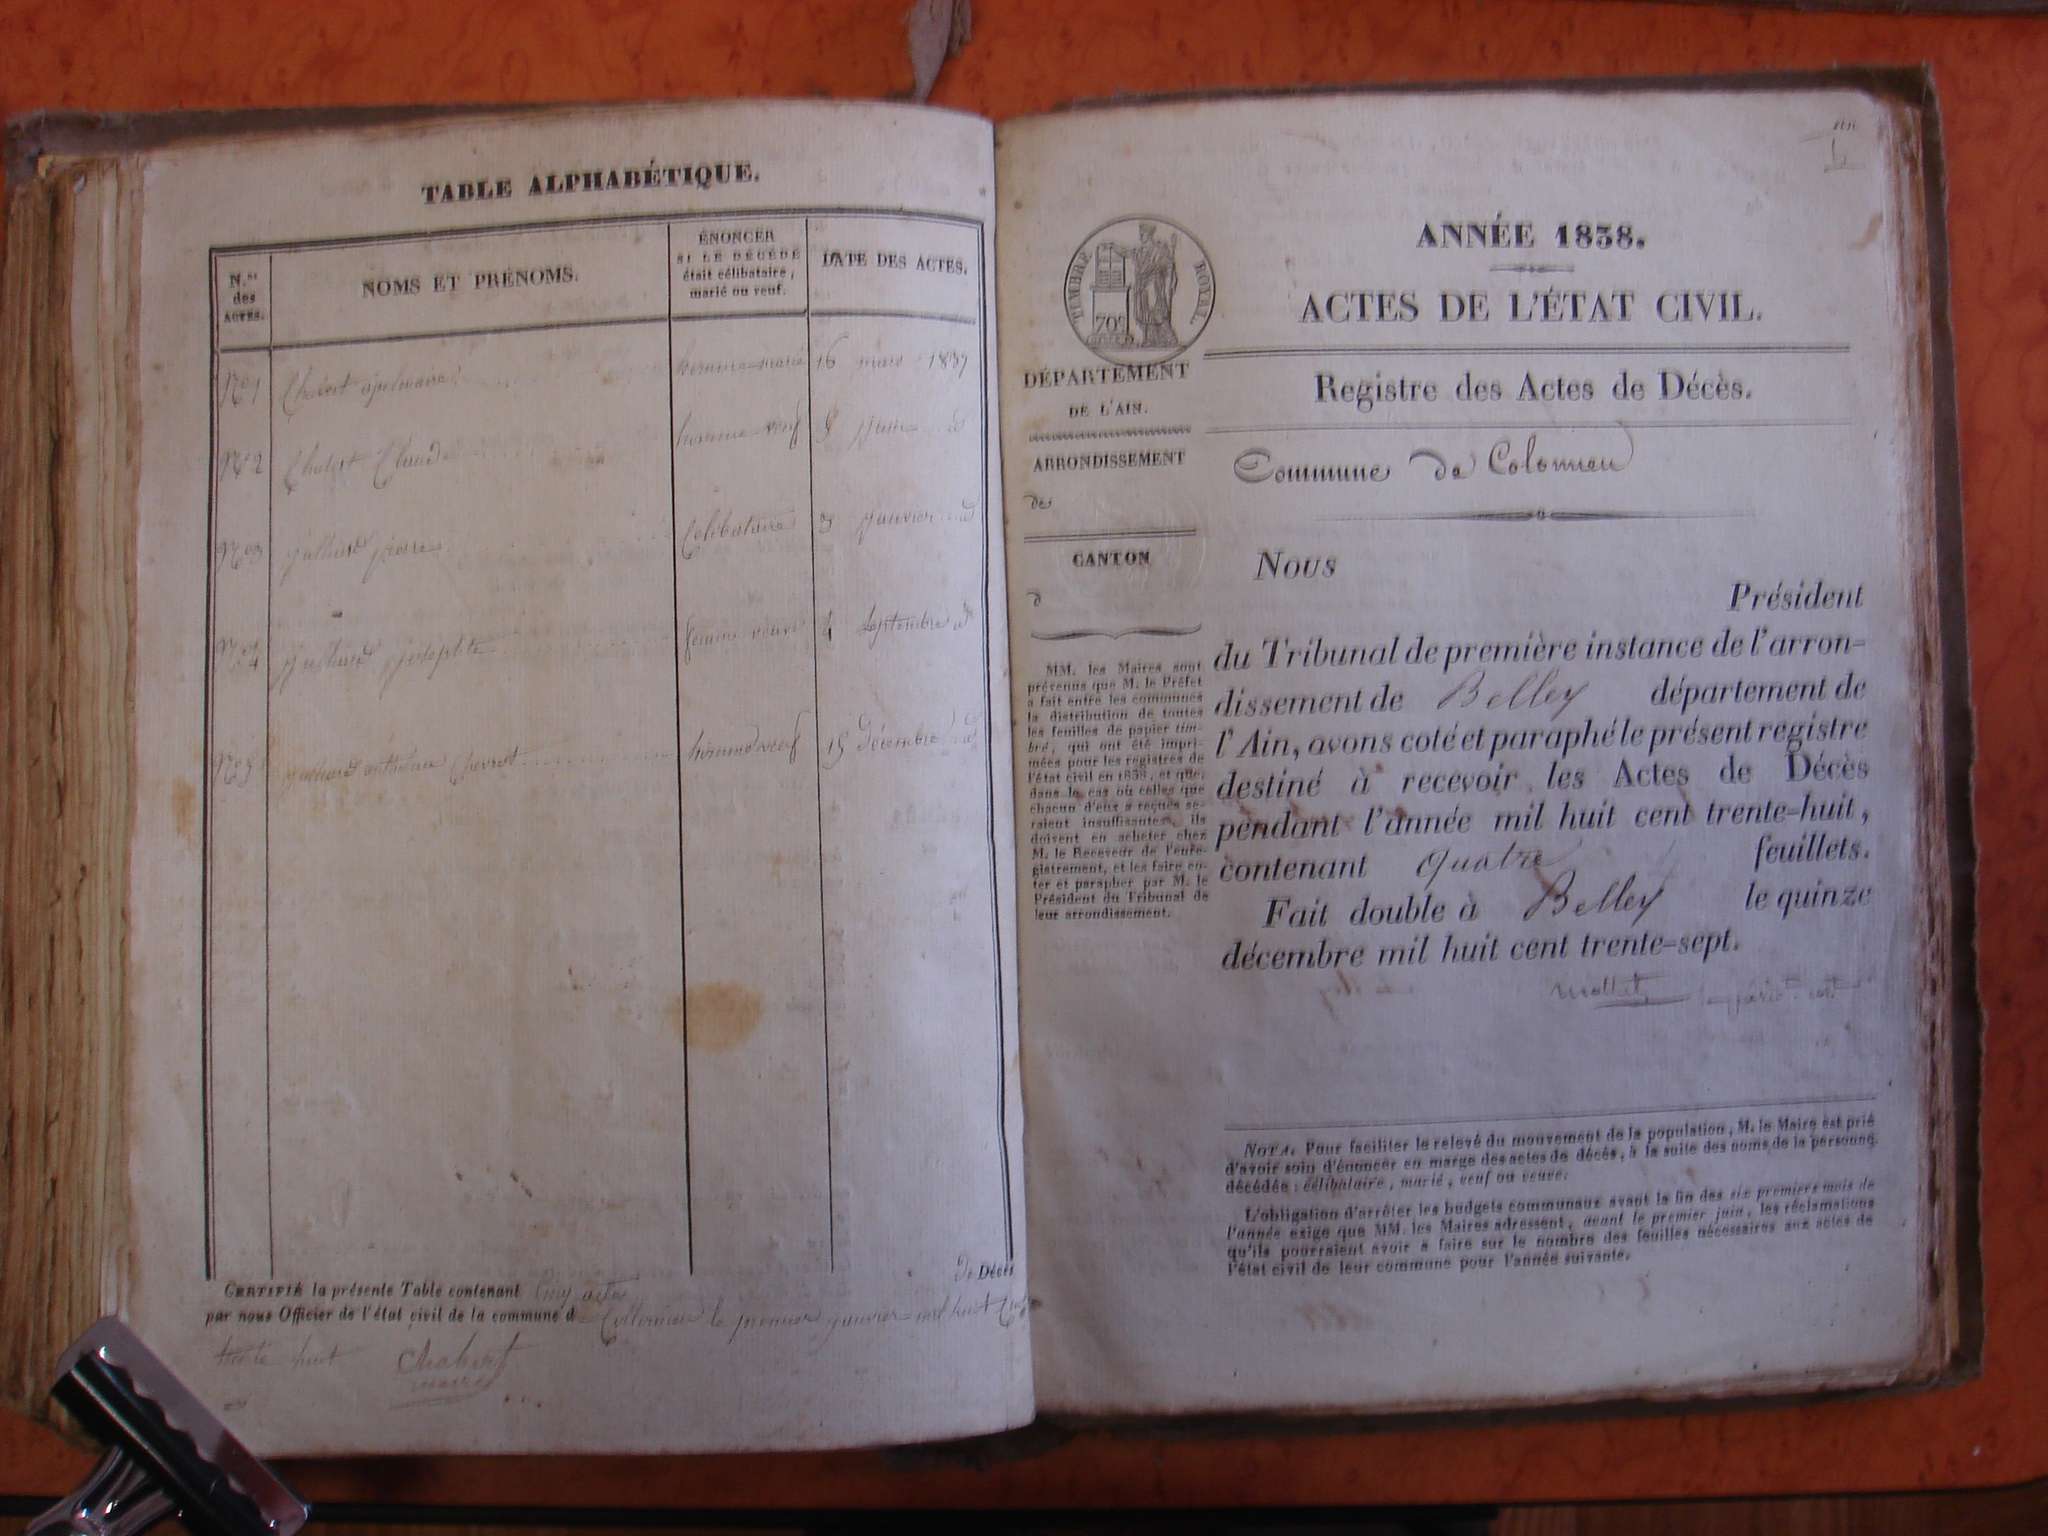 TABLE ALPHABÉTIQUE.
N.os des ACTES.
NOMS ET PRÉNOMS.
ÉNONCER
SI LE DÉCÉDÉ
était célibataire,
marié ou veuf.
DATE DES ACTES.
N°1 Chabert homme marié 16 mars 1837
N°2 Chabert Claude homme veuf 8 d°
N°3 pierre Célibataire 3 janvier d°
N°4 femme veuve 4 Septembre d°
N°5 anthelme homme veuf 15 Décembre d°
de Décès
CERTIFIÉ la présente Table contenant Cinq actes
par nous Officier de l'état civil de la commune d Collomieu le premier janvier mil huit Cent
trente huit Chabert
maire
ANNÉE 1838.
ACTES DE L'ÉTAT CIVIL.
TIMBRE ROYAL
70c
DÉPARTEMENT
DE L'AIN.
ARRONDISSEMENT
de
CANTON
d
MM. les Maires sont
prévenus que M. le Préfet
a fait entre les communes
la distribution de toutes
les feuilles de papier tim-
bré, qui ont été impri-
mées pour les registres de
l'état civil en 1838, et que,
dans le cas où celles que
chacun d'eux a reçues se-
raient insuffisantes, ils
doivent en acheter chez
M. le Receveur de l'enre-
gistrement, et les faire co-
ter et parapher par M. le
Président du Tribunal de
leur arrondissement.
Registre des Actes de Décès.
Commune de Colomieu
Nous
Président
du Tribunal de première instance de l'arron-
dissement de Belley département de
l'Ain, avons coté et paraphé le présent registre
destiné à recevoir les Actes de Décès
pendant l'année mil huit cent trente-huit,
contenant quatre feuillets.
Fait double à Belley le quinze
décembre mil huit cent trente-sept.
NOTA. Pour faciliter le relevé du mouvement de la population, M. le Maire est prié
d'avoir soin d'énoncer en marge des actes de décès, à la suite des noms de la personne
décédée : célibataire, marié, veuf ou veuve.
L'obligation d'arrêter les budgets communaux avant la fin des six premiers mois de
l'année exige que MM. les Maires adressent, avant le premier juin, les réclamations
qu'ils pourraient avoir à faire sur le nombre des feuilles nécessaires aux actes de
l'état civil de leur commune pour l'année suivante.